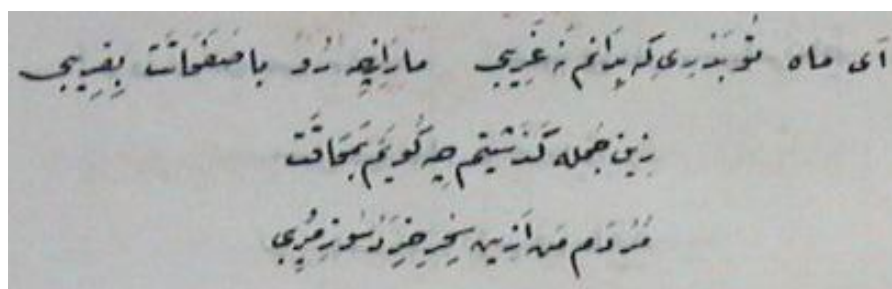 ای ماه تو بدری که بدانم نه غریبی ما را ز چه رو با صفحاتت بفریبی
زین جمله گذشتیم چه گویم بمحاقت
مردم من ازین سحر خرد سوز مریبی